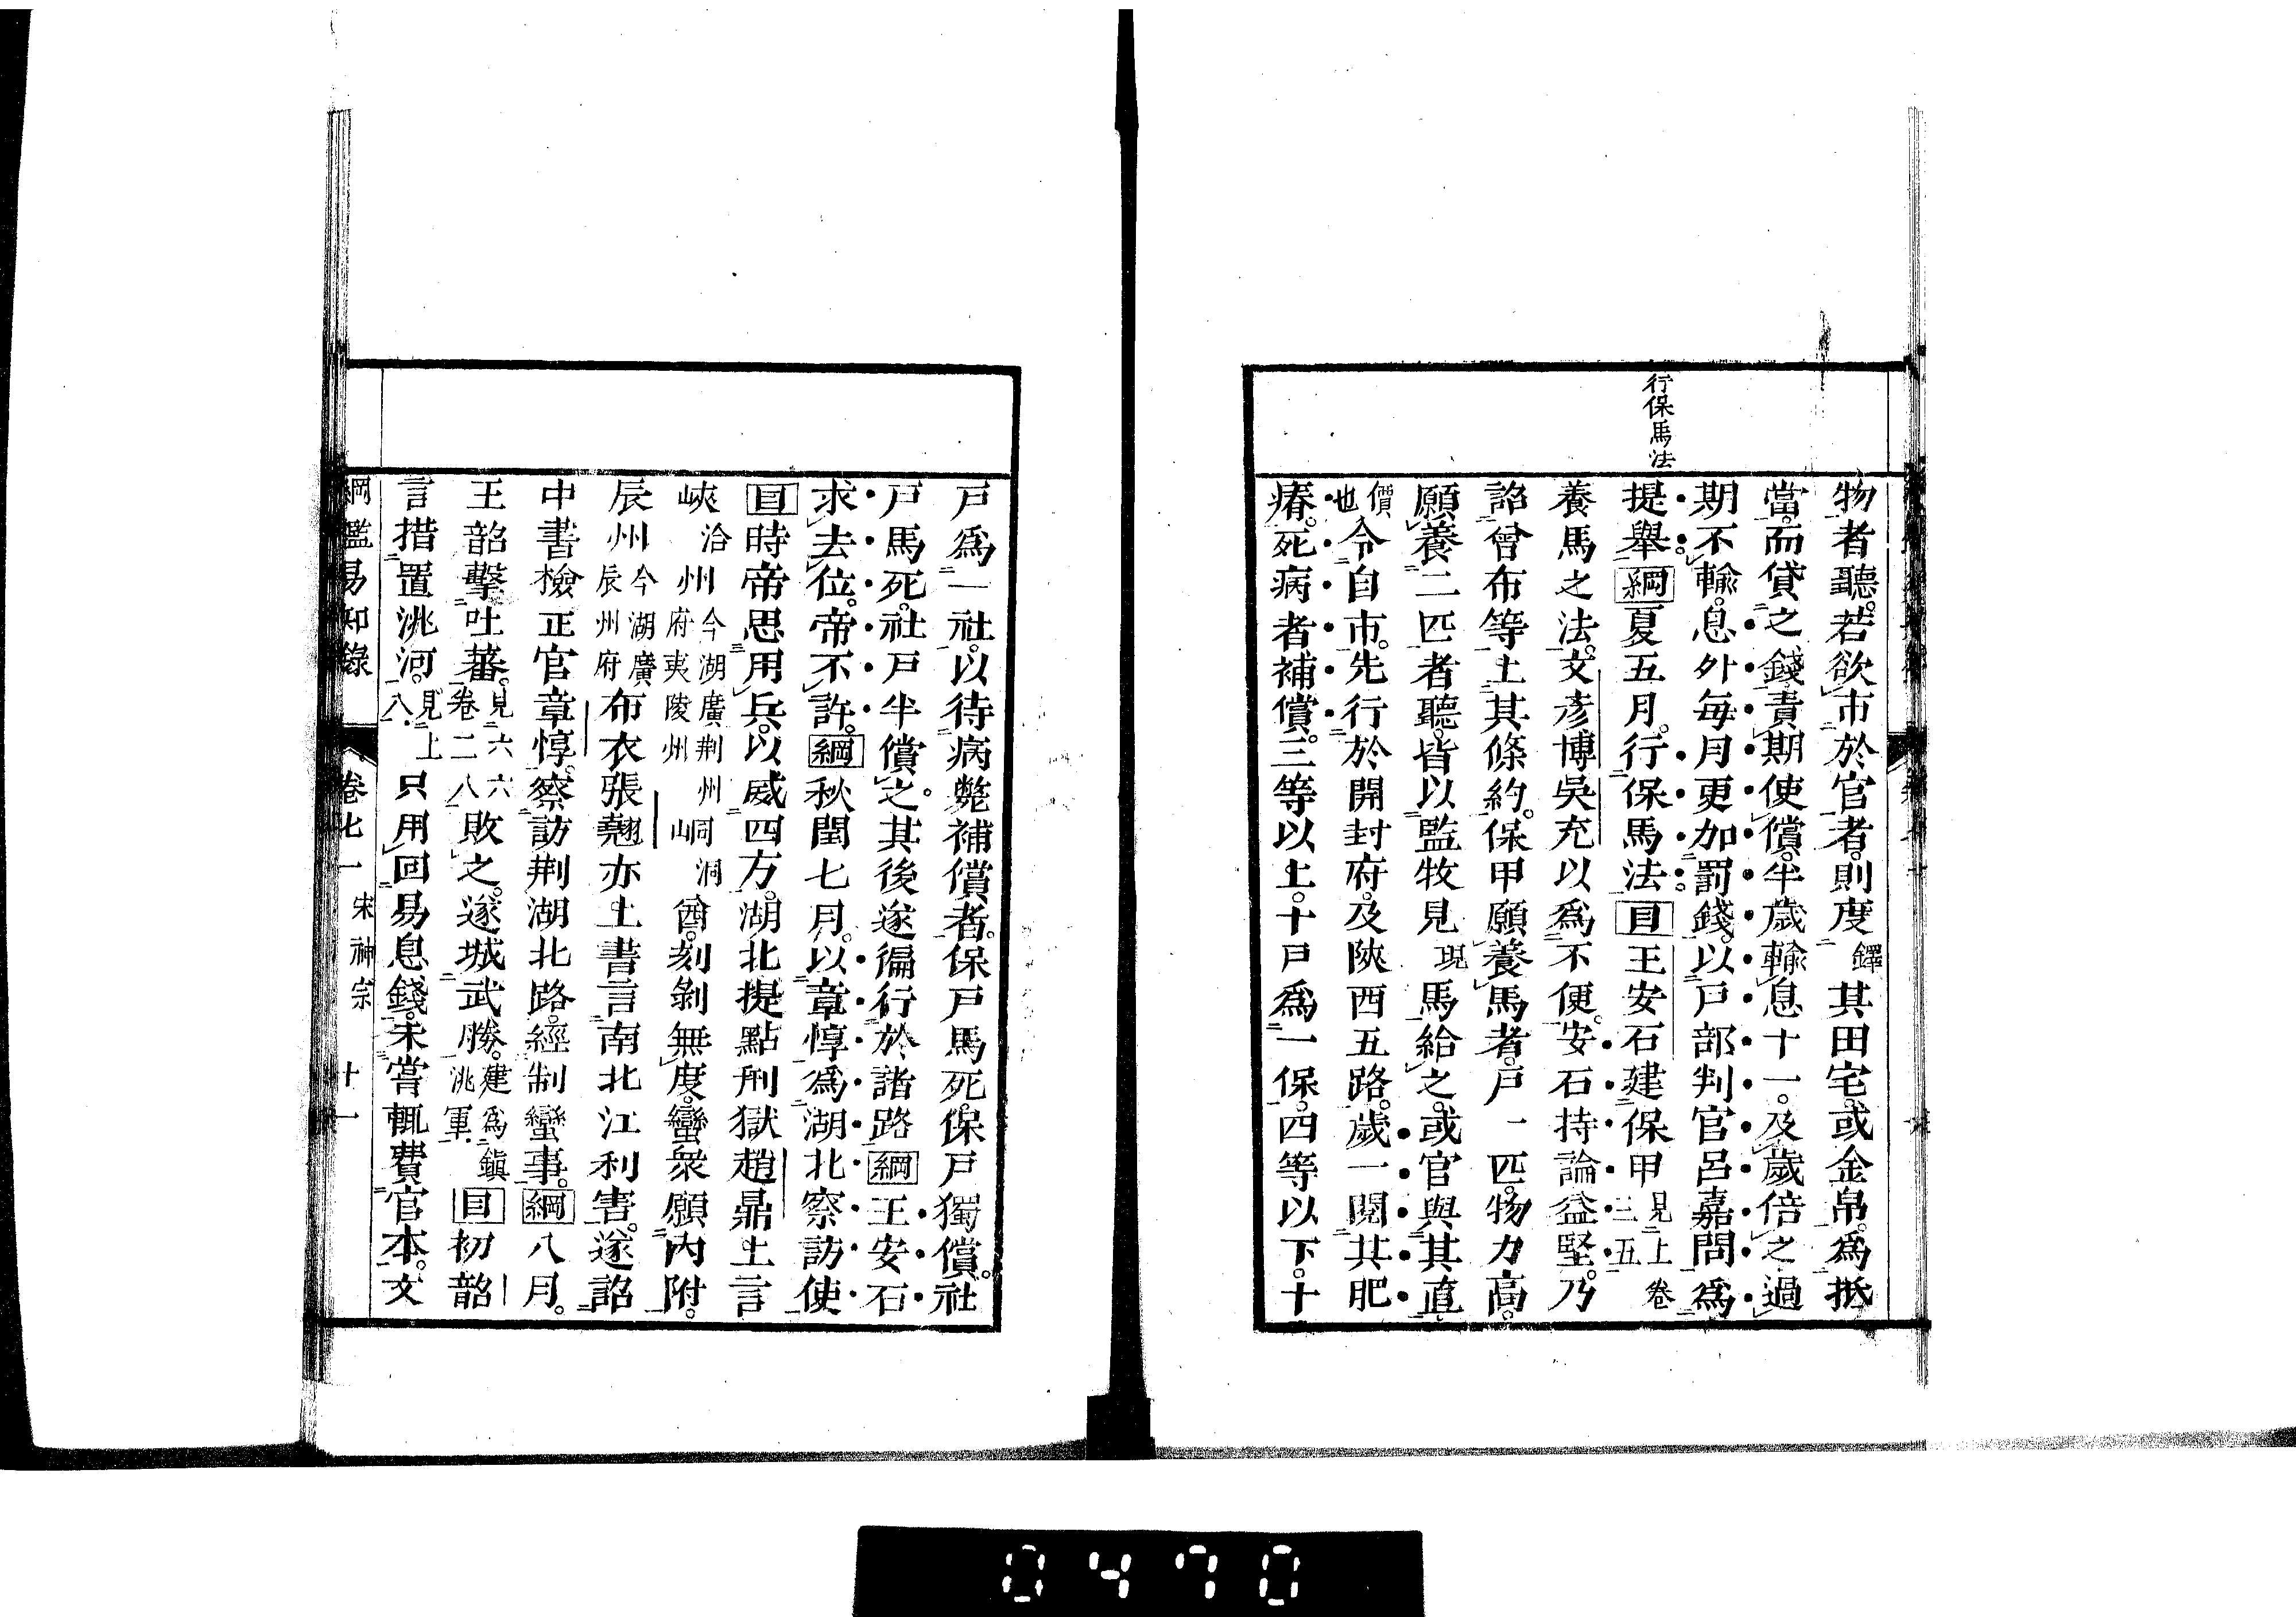 行保馬法
物者聽。若欲市於官者。則度鐸其田宅。或金帛。爲抵
當。而貸之錢。責期使償。半歲輸息十一。及歲倍之。過
期不輸。息外每月更加罰錢。以戶部判官呂嘉問爲
提舉。綱夏五月。行保馬法。目王安石建保甲見上卷三五
養馬之法。文彥博吳充以爲不便。安石持論益堅。乃
詔曾布等上其條約。保甲願養馬者。戶一匹。物力高。
願養二匹者聽。皆以監牧見現馬給之。或官與其直
價也令自市。先行於開封府。及陝西五路。歲一閱其肥
瘠。死病者補償。三等以上。十戶爲一保。四等以下。十
戶爲一社。以待病斃補償者。保戶馬死。保戶獨償。社
戶馬死。社戶半償之。其後遂徧行於諸路。綱王安石
求去位。帝不許。綱秋閏七月。以章惇爲湖北察訪使
目時帝思用兵。以威四方。湖北提點刑獄趙鼎上言
峽洽州今湖廣荆州府夷陵州峒洞酋。刻剝無度。蠻衆願內附。
辰州今湖廣辰州府布衣張翹亦上書言南北江利害。遂詔
中書檢正官章惇。察訪荆湖北路。經制蠻事。綱八月。
王韶擊吐蕃。見六六卷二八敗之。遂城武勝。建爲鎮洮軍目初韶
言措置洮河。見上八只用回易息錢。未嘗輒費官本。文
綱鑑易知錄 卷七一 宋神宗 十一
0470